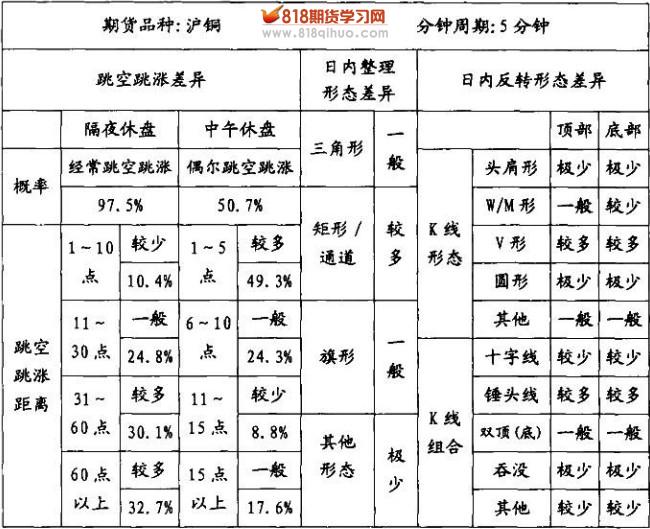 818期货学习网
www.818qihuo.com
期货品种:沪铜 分钟周期:5分钟
跳空跳涨差异 日内整理形态差异 日内反转形态差异
隔夜休盘 中午休盘 三角形 一般 顶部 底部
概率 经常跳空跳涨 偶尔跳空跳涨 K线形态 头肩形 极少 极少
97.5% 50.7% 矩形/通道 较多 W/M形 一般 较少
跳空跳涨距离 1~10点 较少 1~5点 较多 V形 较多 较多
10.4% 49.3% 圆形 极少 极少
11~30点 一般 6~10点 一般 旗形 一般 其他 一般 一般
24.8% 24.3% K线组合 十字线 较少 较少
31~60点 较多 11~15点 较少 锤头线 较多 较多
30.1% 8.8% 其他形态 极少 双顶(底) 一般 一般
60点以上 较多 15点以上 一般 吞没 极少 极少
32.7% 17.6% 其他 较少 较少